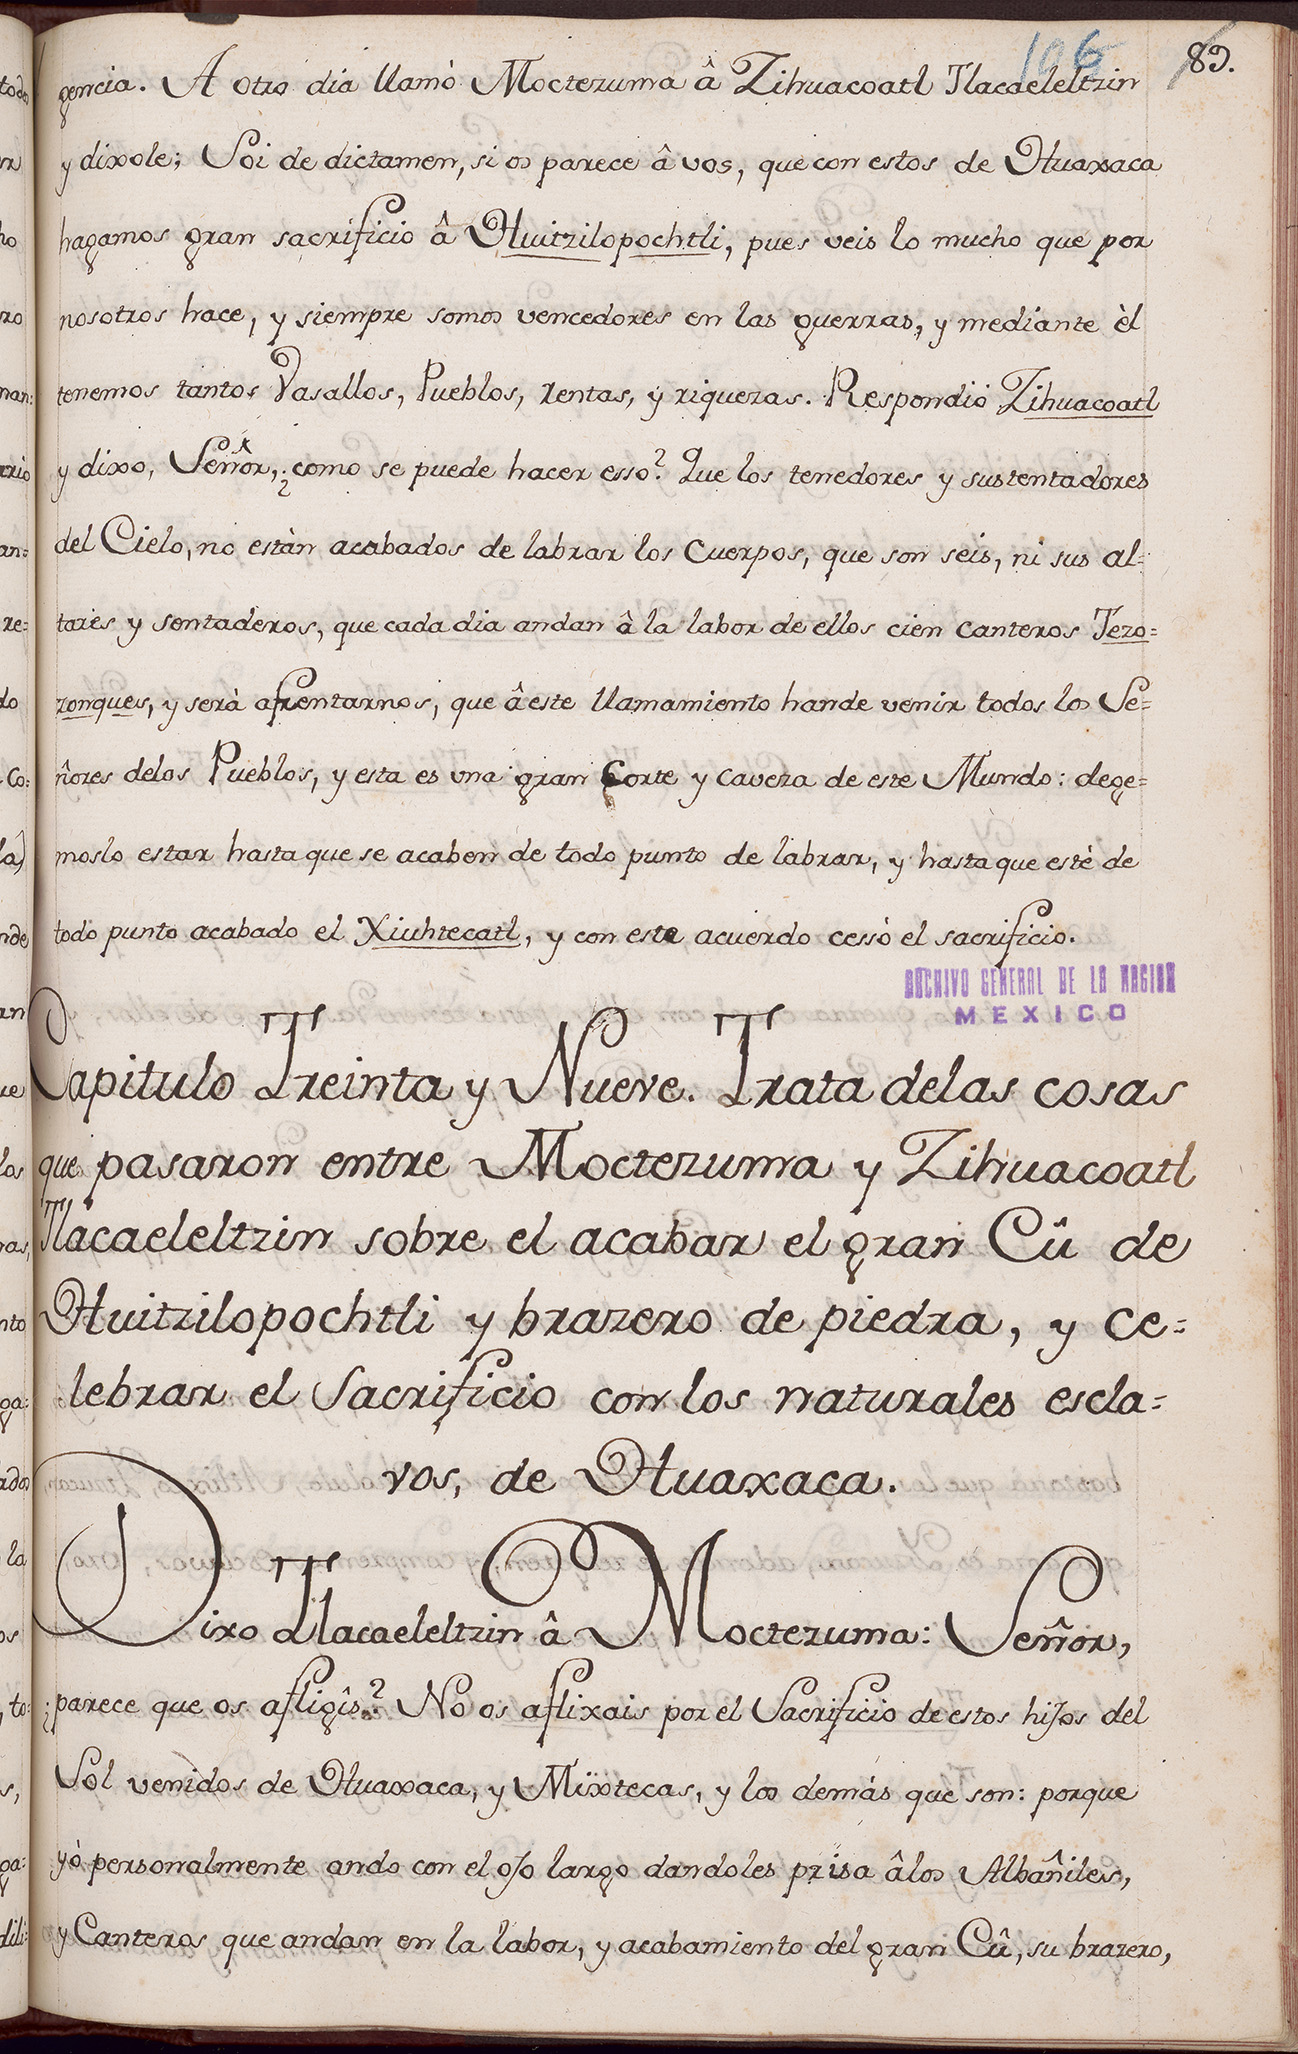 106 89.
gencia. A otro dia llamò Moctezuma â Zihuacoatl Tlacaeleltzin
y dixole; Soi de dictamen, si os parece â vos, que con estos de Huaxaca
hagamos gran sacrificio â Huitzilopochtli, pues veis lo mucho que por
nosotros hace, y siempre somos vencedores en las guerras, y mediante èl
tenemos tantos Vasallos, Pueblos, rentas, y riquezas. Respondió Zihuacoatl
y dixo, Señor, ¿como se puede hacer esso? Que los tenedores y sustentadores
del Cielo, no estàn acabados de labrar los Cuerpos, que son seis, ni sus al=
tares y sentaderos, que cada dia andan â la labor de ellos cien Canteros Tezo=
zonques, y serà afrentarnos, que â este llamamiento hande venir todos los Se=
ñores delos Pueblos, y esta es una gran Corte y caveza de este Mundo: dege=
moslo estar hasta que se acaben de todo punto de labrar, y hasta que estè de
todo punto acabado el Xiuhtecatl, y con este acuerdo cessò el sacrificio.
ARCHIVO GENERAL DE LA NACION
MEXICO
Capitulo Treinta y Nueve. Trata delas cosas
que pasaron entre Moctezuma y Zihuacoatl
Tlacaeleltzin sobre el acabar el gran Cû de
Huitzilopochtli y brazero de piedra, y ce=
lebrar el Sacrificio con los naturales escla=
vos, de Huaxaca.
Dixo Tlacaeleltzin â Moctezuma: Señor,
¿parece que os afligîs? No os aflixais por el Sacrificio de estos hijos del
Sol venidos de Huaxaca, y Mixtecas, y los demàs que son: porque
yò personalmente ando con el ojo largo dandoles prisa âlos Albañiles,
y Canteros que andan en la labor, y acabamiento del gran Cû, su brazero,